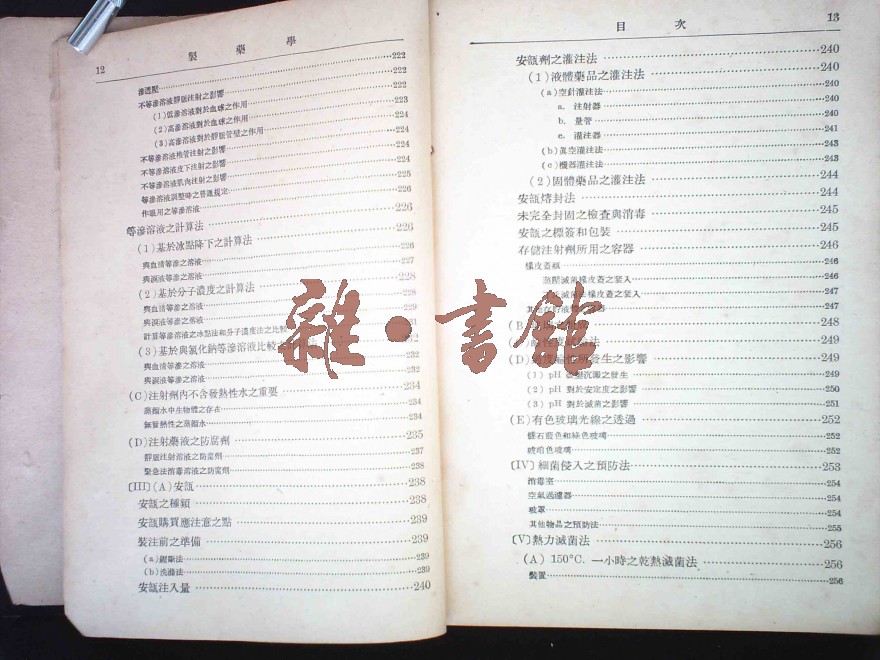 12 製藥學
滲透壓 222
不等滲溶液靜脈注射之影響 222
(1)低滲溶液對於血球之作用 222
(2)高滲溶液對於血球之作用 223
(3)高滲溶液對於靜脈管壁之作用 224
不等滲溶液椎管注射之影響 224
不等滲溶液皮下注射之影響 224
不等滲溶液肌肉注射之影響 225
等滲溶液調整時之普通規定 225
作眼用之等滲溶液 226
等滲溶液之計算法 226
(1)基於冰點降下之計算法 226
與血清等滲之溶液 226
與淚液等滲之溶液 227
(2)基於分子濃度之計算法 228
與血清等滲之溶液 228
與淚液等滲之溶液 229
計算等滲溶液之冰點法和分子濃度法之比較
(3)基於與氯化鈉等滲溶液比較
與血清等滲之溶液 232
與淚液等滲之溶液 232
(C)注射劑內不含發熱性水之重要 234
蒸餾水中生物體之存在 234
無發熱性之蒸餾水 234
(D)注射藥液之防腐劑 235
靜脈注射溶液之防腐劑 237
緊急法消毒溶液之防腐劑 238
〔III〕(A)安瓿 238
安瓿之種類 238
安瓿購買應注意之點 239
裝注前之準備 239
(a)鋸斷法 239
(b)洗滌法 239
安瓿注入量 240
目次 13
安瓿劑之灌注法 240
(1)液體藥品之灌注法 240
(a)空針灌注法 240
a. 注射器 240
b. 量管 240
c. 灌注器 241
(b)眞空灌注法 243
(c)機器灌注法 243
(2)固體藥品之灌注法 244
安瓿熔封法 244
未完全封固之檢查與消毒 245
安瓿之標簽和包裝 245
存儲注射劑所用之容器 246
橡皮蓋瓶 246
蒸壓滅菌橡皮蓋之裝入 246
橡皮蓋之裝入 247
其他 247
(B) 248
249
(D) 發生之影響 249
(1) pH 沉澱之發生 249
(2) pH 對於安定度之影響 250
(3) pH 對於滅菌之影響 251
(E)有色玻璃光線之透過 252
藍色和綠色玻璃 252
琥珀色玻璃 252
〔IV〕細菌侵入之預防法 253
消毒室 254
空氣過濾器 254
玻罩 254
其他物品之預防法 255
〔V〕熱力滅菌法 256
(A) 150°C. 一小時之乾熱滅菌法 256
裝置 256
雜·書館